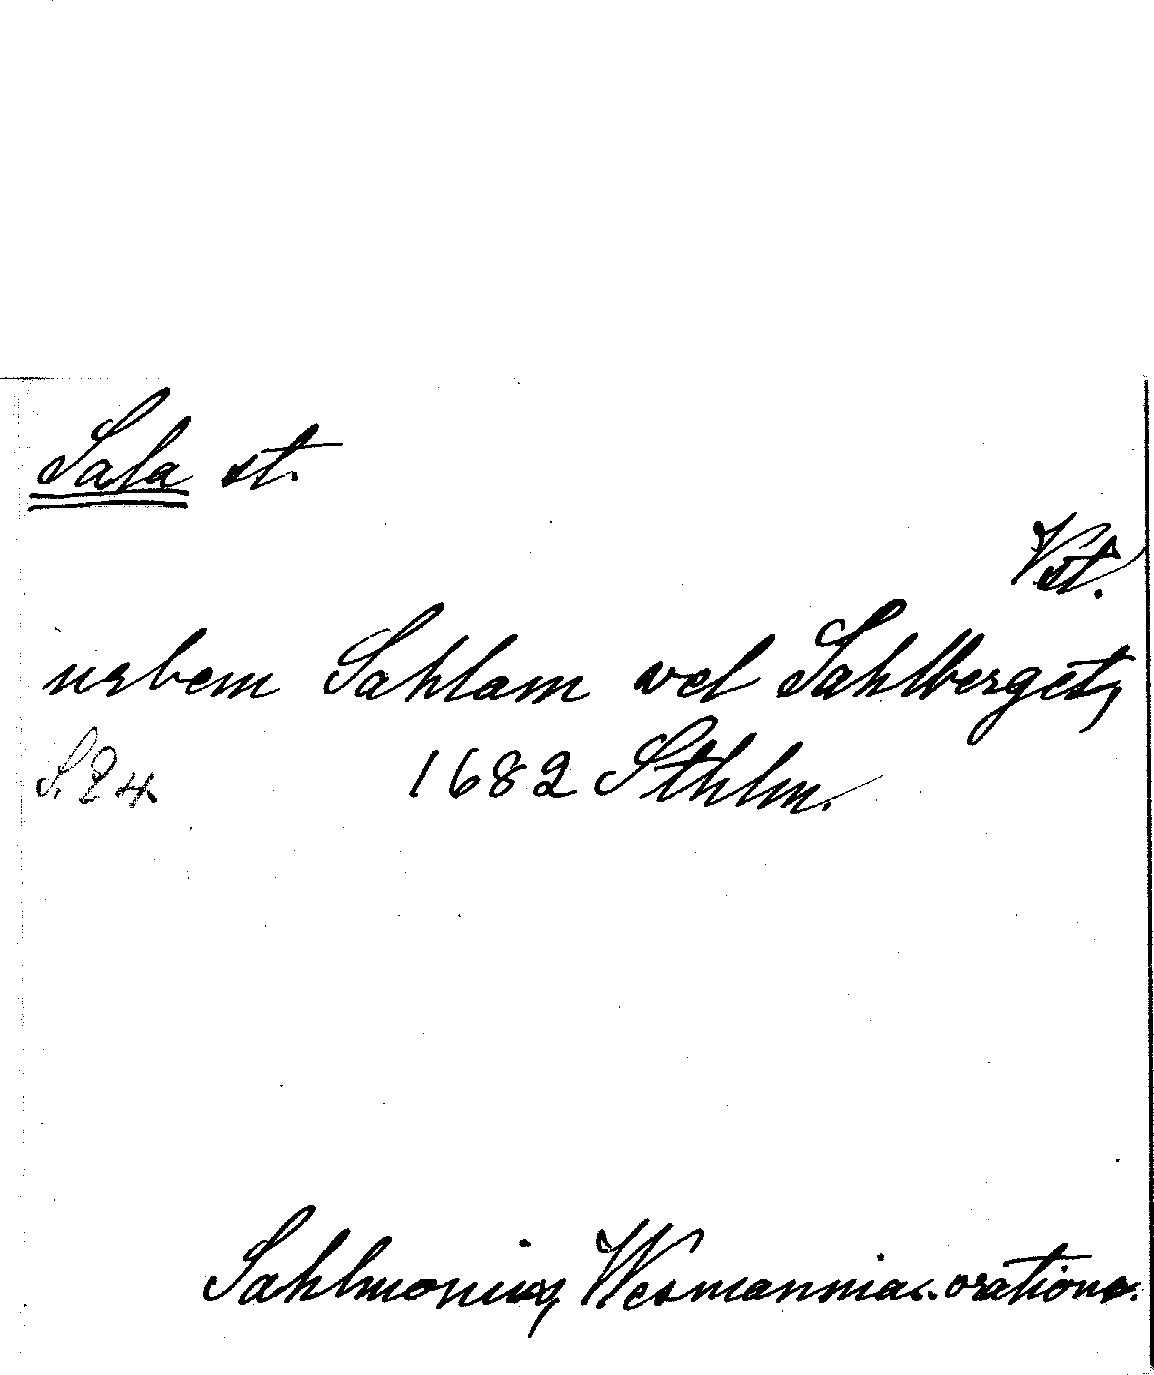 Sala st.
Vst.
urbem Sahlam vel Sahlberget,
S. 24. 1682 Sthlm.
Sahlmonius, Wesmanniac. oratione.